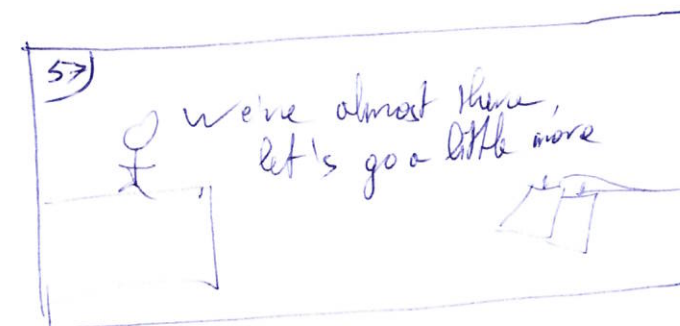 57)
We're almost there,
let's go a little more